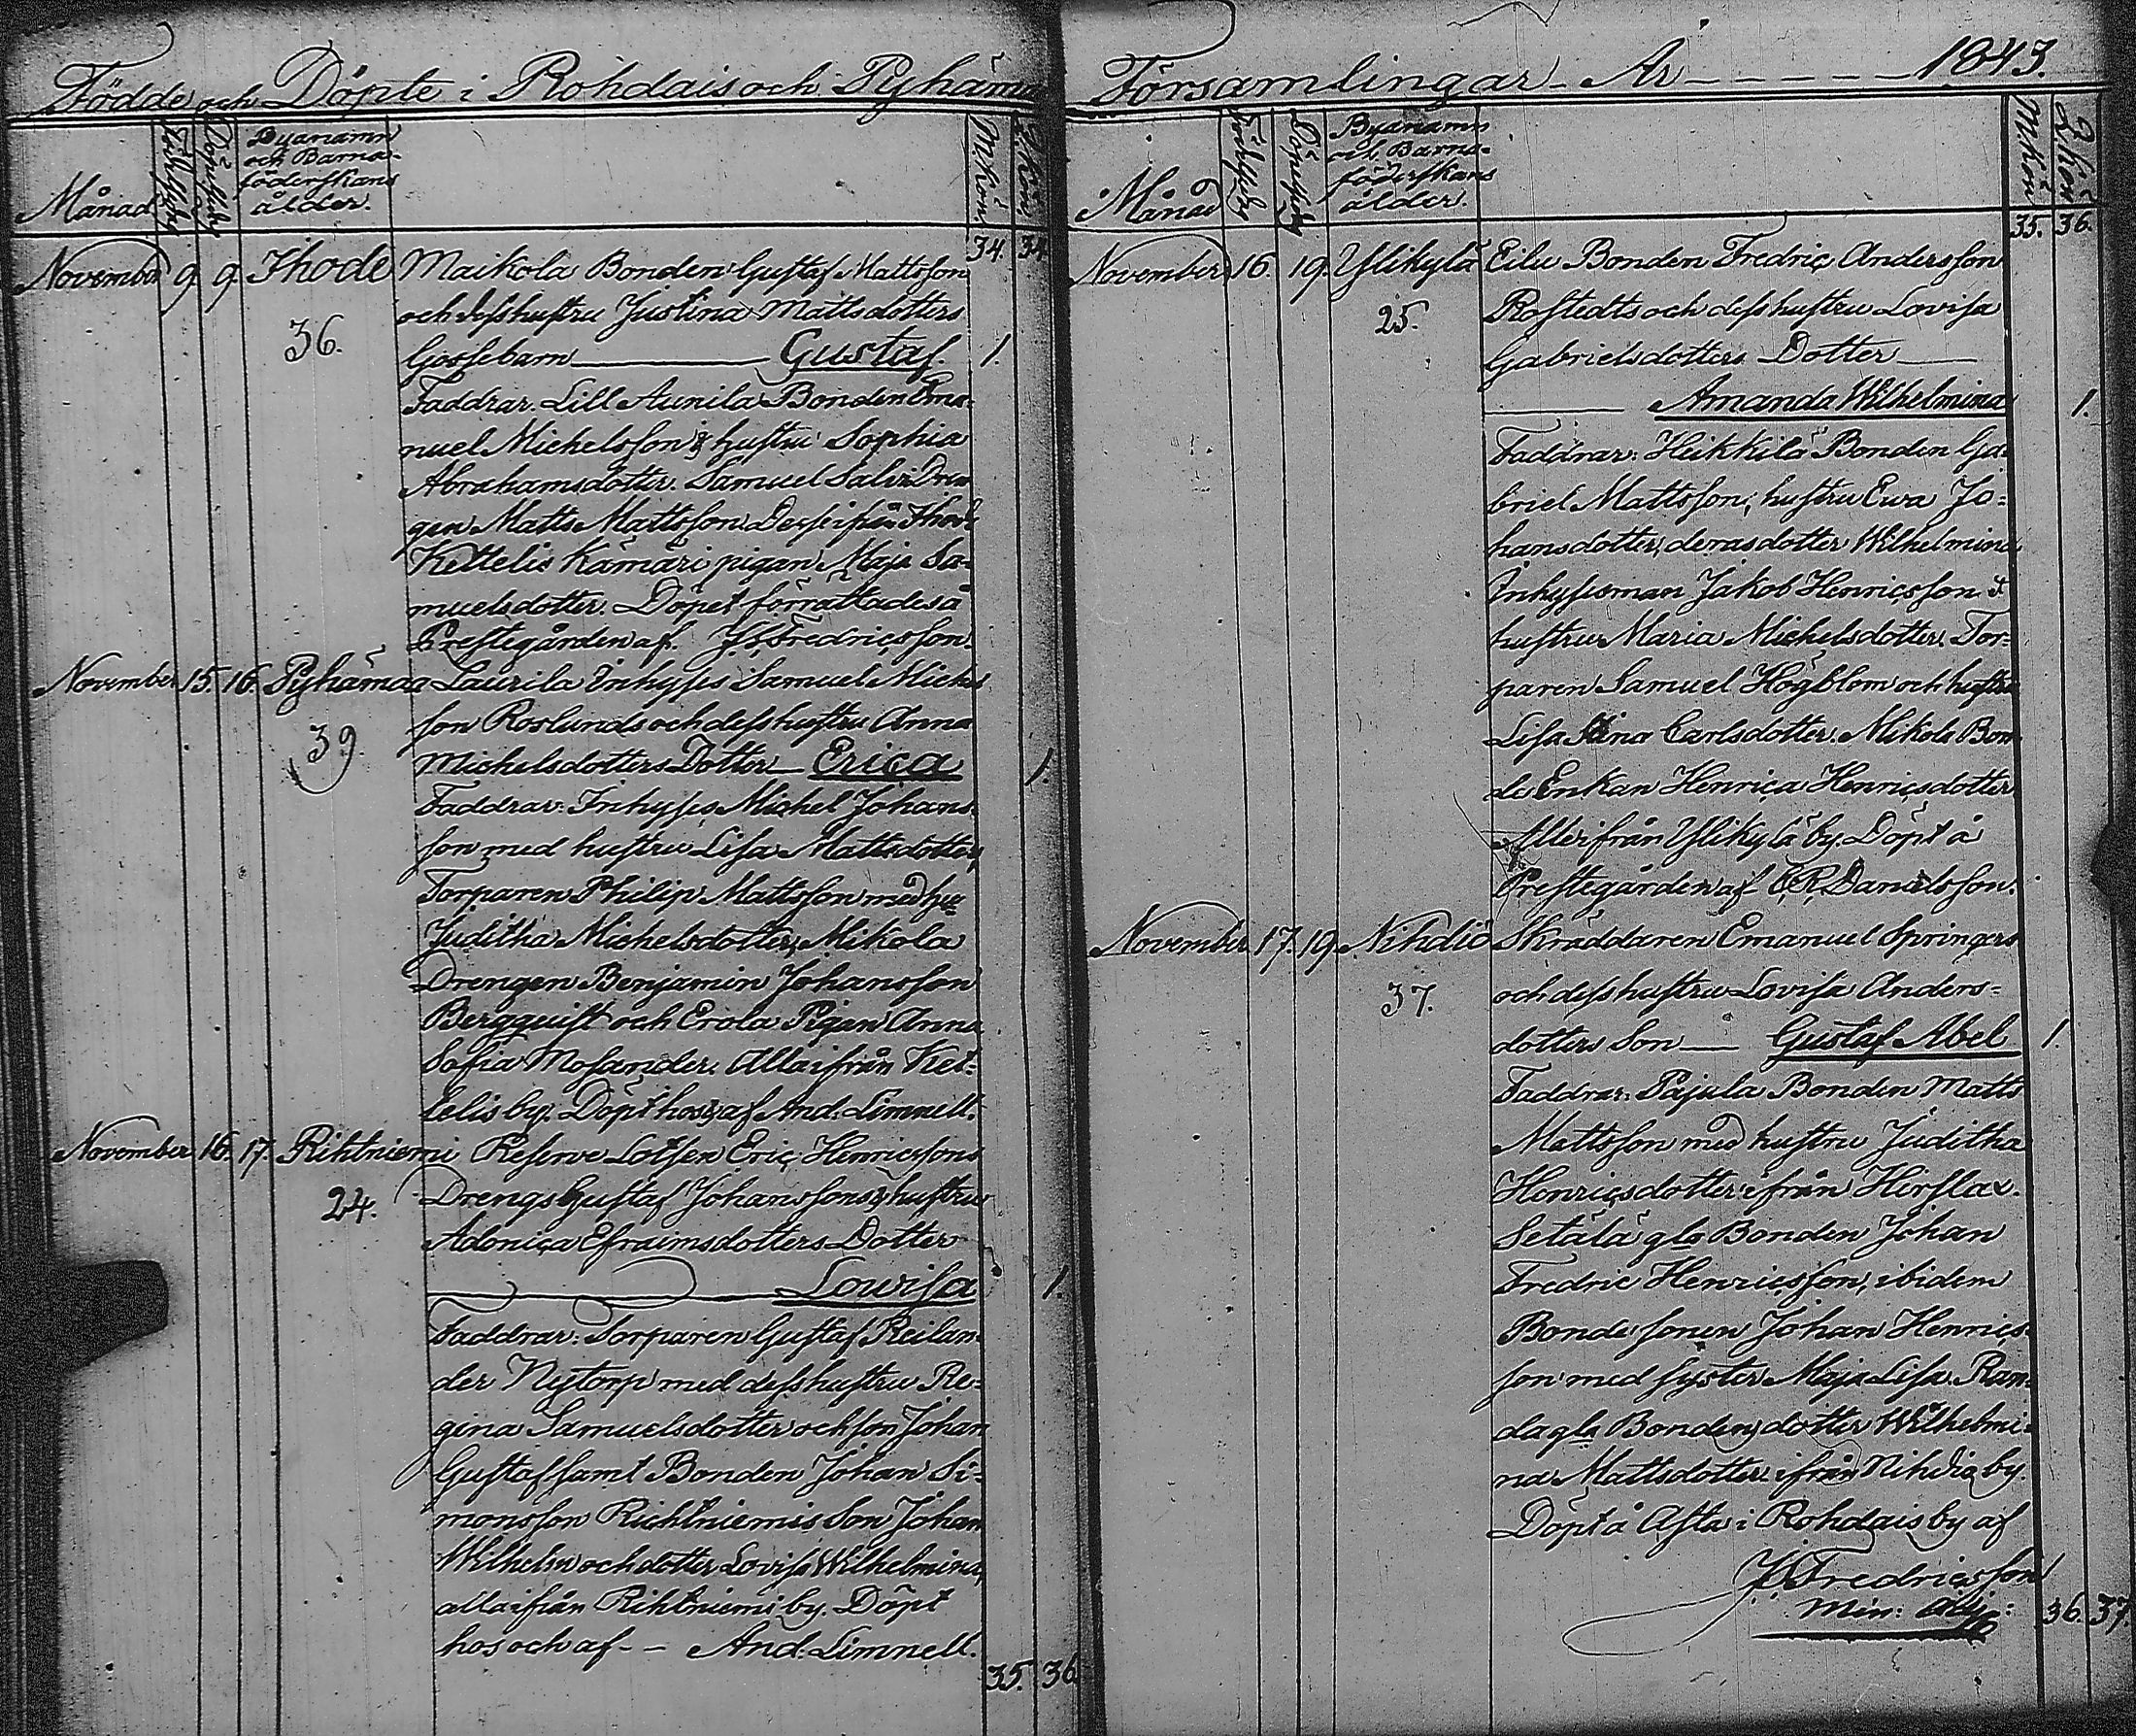 Födde och Döpte i Rohdais och Pyhäma Församlingar - År - - - - - 1843.
Månad
Byanamn
och Barna-
föderskans
ålder.
M.kön.
Q.kön.
34. 34
November 9. 9. Ihode Maikola Bonden Gustaf Mattsson
och dess hustru Justina Mattsdotters
36.
Gossebarn Gustaf. 1.
Faddrar. Lill Aunila Bonden Ema-
nuel Michelsson & hustru Sophia
Abrahamsdotter. Samuel Salvi Dren
gen Matts Mattsson Desse ifrån Ihode
Kettelis Kämäri pigan Maja Sa-
muelsdotter. Döpet förrättades å
Prestegården af. J. Fredricsson.
November 15. 16. Pyhämaa Laurila Inhyses Samuel Michels
son Roslunds och dess hustru Anna
39.
Michelsdotters Dotter Erica 1.
Faddrar: Inhyses Michel Johans-
son med hustru Lisa Mattsdotter,
Torparen Philip Mattsson med hu
Juditha Michelsdotter, Mikola
Drengen Benjamin Johansson
Bergquist och Erola Pigan Anna
Sofia Mosander. Alla ifrån Ket-
telis by. Döpt hos & af And. Limnell.
November 16. 17. Rihtniemi Reserve Lotsen Eric Henricssons
24.
Drengs Gustaf Johanssons & hustru
Adonica Efraimsdotters Dotter
Lowisa 1.
Faddrar: Torparen Gustaf Reilan-
der Nytorp med dess hustru Re-
gina Samuelsdotter och son Johan
Gustaf samt Bonden Johan Si-
monsson Richtniemis Son Johan
Wilhelm och dotter Lovisa Wilhelmina,
alla ifrån Rihtniemi by. Döpt
hos och af - - And. Limnell.
35. 36
Månad
Byanamn
och Barns-
föderskans
ålder.
M.kön
Q.kön
35. 36.
November 16. 19. Ylikylä Eilu Bonden Fredric Andersson
25.
Rostedts och dess hustru Lovisa
Gabrielsdotters Dotter
Amanda Wilhelmina 1.
Faddrar: Heikkilä Bonden Ga-
briel Mattsson, hustru Ewa Jo-
hansdotter, deras dotter Wilhelmina
Inhysesman Jakob Henricsson &
hustru Maria Michelsdotter. Tor-
paren Samuel Högblom och hustru
Lisa Stina Carlsdotter. Mikola Bon
de Enkan Henrica Henricsdotter
Alla ifrån Ylikylä by. Döpt å
Prestegården af C. R. Danielsson.
November 17. 19. Nihdiö Skräddaren Emanuel Springers
37.
och dess hustru Lovisa Anders-
dotters Son Gustaf Abel 1.
Faddrar: Pajula Bonden Matts
Mattsson med hustru Juditha
Henricsdotter ifrån Hirslax.
Setälä gls Bonden Johan
Fredric Henricsson, ibidem
Bonde sonen Johan Henrics-
son med syster Maja Lisa. Ran-
da gls Bondens dotter Wilhelmi-
na Mattsdotter ifrån Nihdiö by.
Döpt å Asta i Rohdais by af
J. Fredricsson
Min: adj:
36. 37